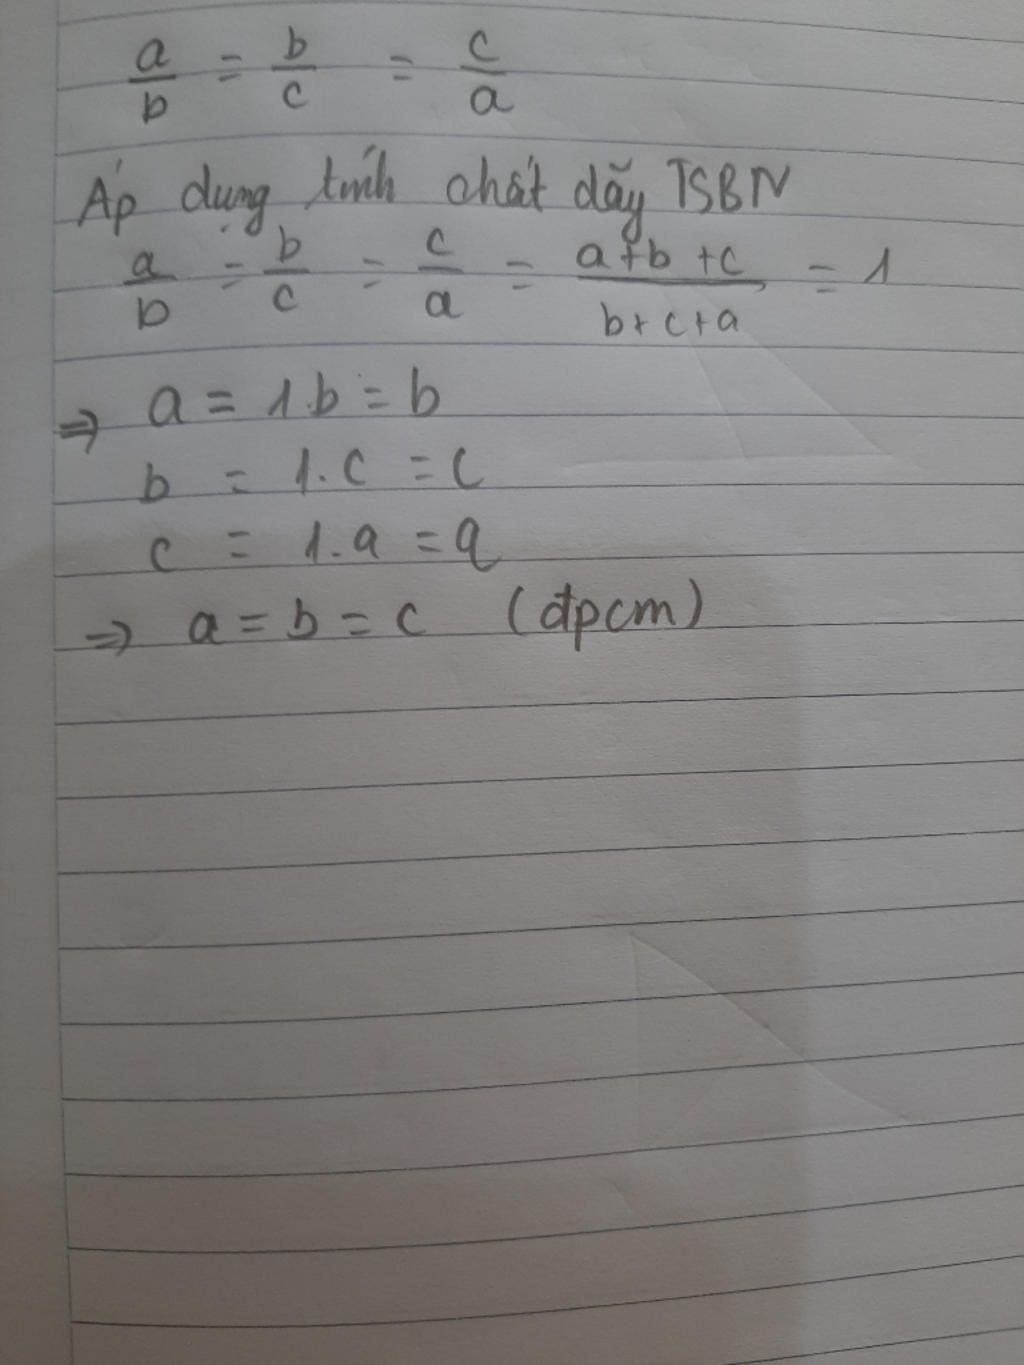 a/b = b/c = c/a
Áp dụng tính chất dãy TSBN
a/b = b/c = c/a = a+b+c / b+c+a = 1
⇒ a = 1.b = b
b = 1.c = c
c = 1.a = a
⇒ a = b = c (đpcm)